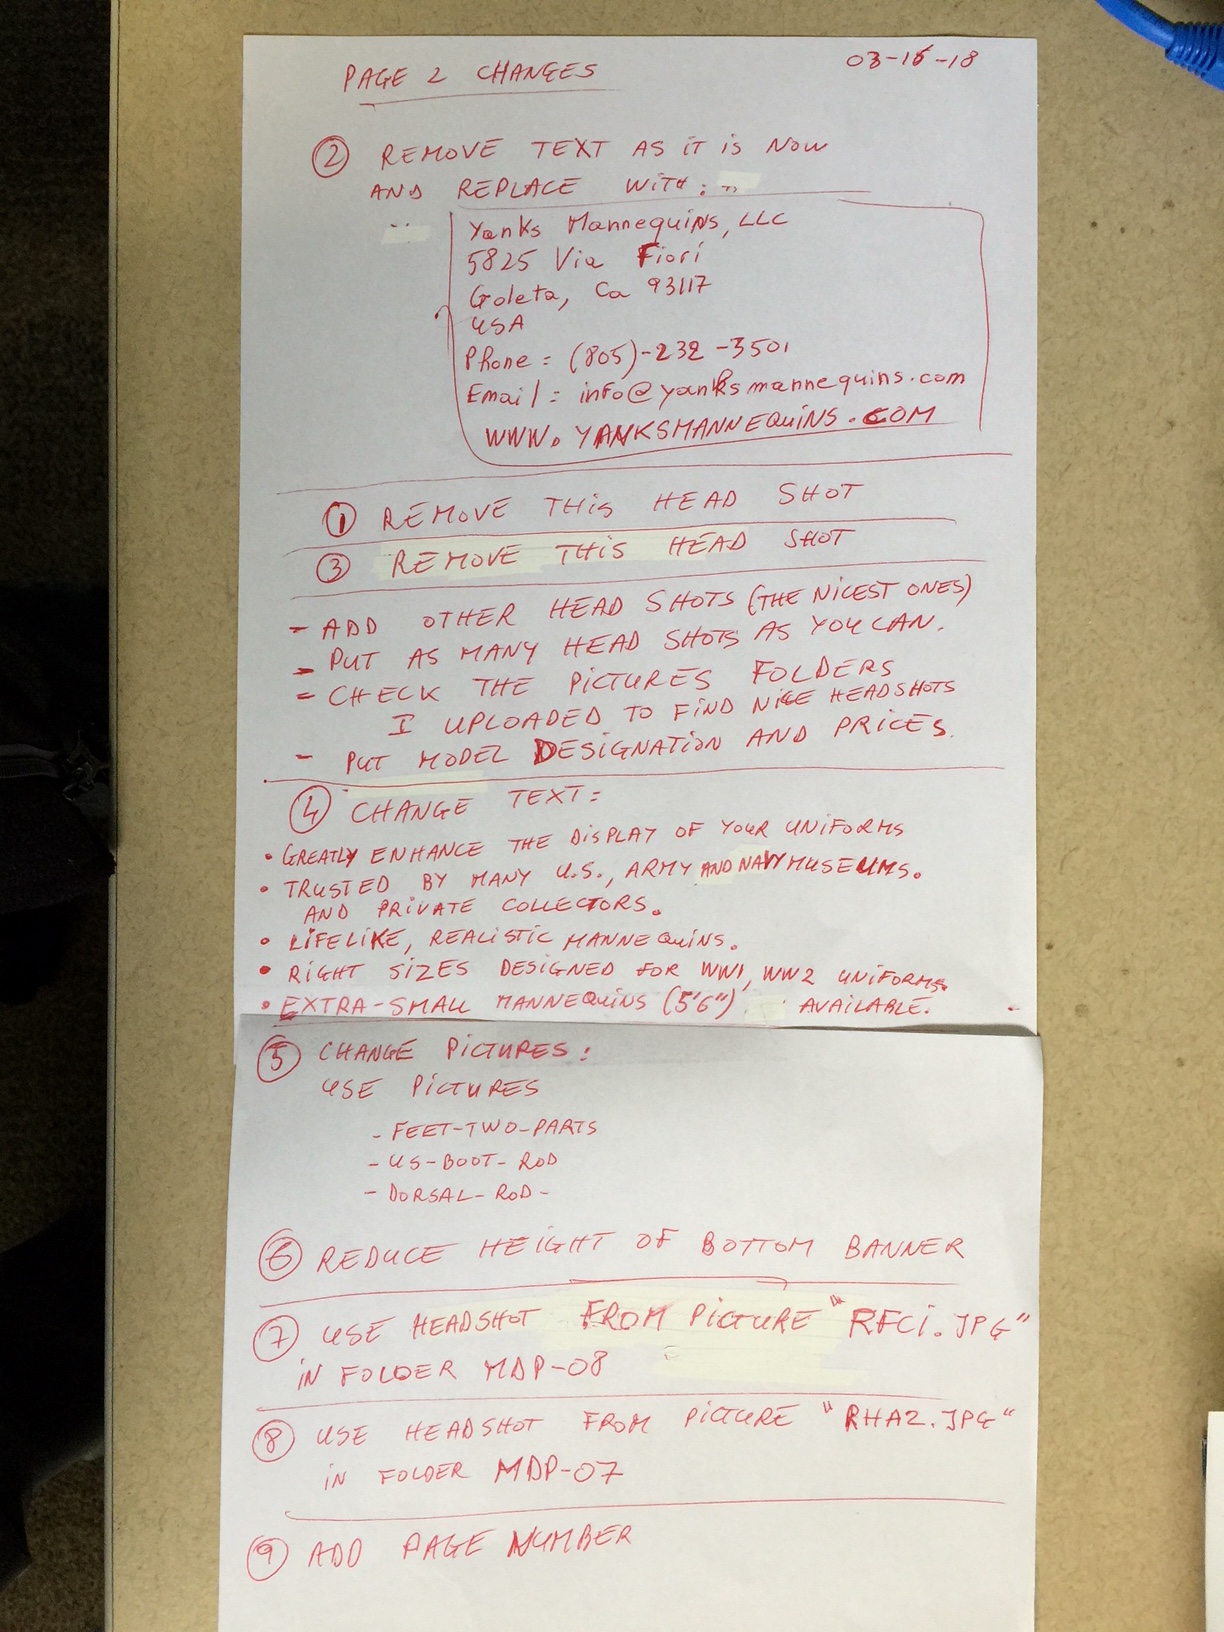 PAGE 2 CHANGES
03-15-18
② REMOVE TEXT AS IT IS NOW
AND REPLACE WITH:
Yanks Mannequins, LLC
5825 Via Fiori
Goleta, Ca 93117
USA
Phone = (805)-232-3501
Email = info@yanksmannequins.com
WWW.YANKSMANNEQUINS.COM
① REMOVE THIS HEAD SHOT
③ REMOVE THIS HEAD SHOT
- ADD OTHER HEAD SHOTS (THE NICEST ONES)
- PUT AS MANY HEAD SHOTS AS YOU CAN.
- CHECK THE PICTURES FOLDERS
I UPLOADED TO FIND NICE HEADSHOTS
- PUT MODEL DESIGNATION AND PRICES.
④ CHANGE TEXT:
• GREATLY ENHANCE THE DISPLAY OF YOUR UNIFORMS
• TRUSTED BY MANY U.S., ARMY AND NAVY MUSEUMS.
AND PRIVATE COLLECTORS.
• LIFELIKE, REALISTIC MANNEQUINS.
• RIGHT SIZES DESIGNED FOR WW1, WW2 UNIFORMS.
• EXTRA-SMALL MANNEQUINS (5'6") AVAILABLE.
⑤ CHANGE PICTURES:
USE PICTURES
- FEET-TWO-PARTS
- US-BOOT-ROD
- DORSAL-ROD-
⑥ REDUCE HEIGHT OF BOTTOM BANNER
⑦ USE HEADSHOT FROM PICTURE "RFCI.JPG"
IN FOLDER MDP-08
⑧ USE HEADSHOT FROM PICTURE "RHA2.JPG"
IN FOLDER MDP-07
⑨ ADD PAGE NUMBER